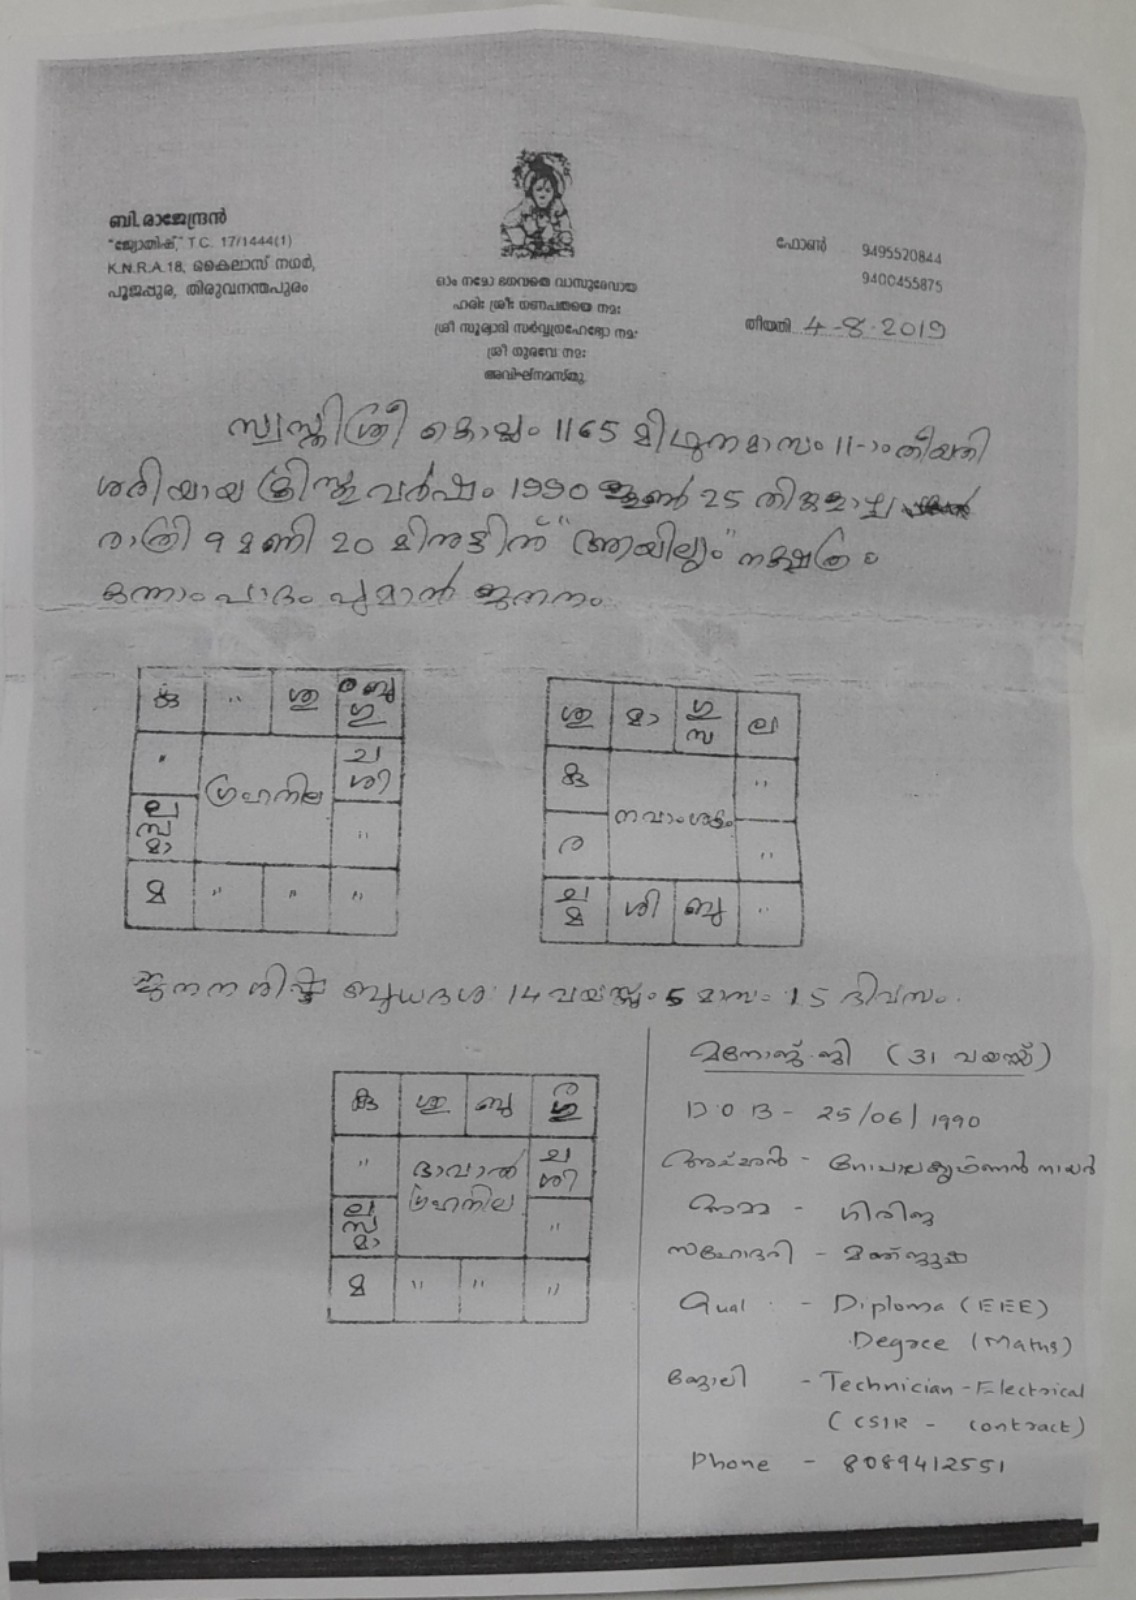 ബി. രാജേന്ദ്രൻ
"ജ്യോതിഷ്," T.C. 17/1444(1)
K.N.R.A.18, കൈലാസ് നഗർ,
പൂജപ്പുര, തിരുവനന്തപുരം
ഓം നമോ ഭഗവതെ വാസുദേവായ
ഹരിഃ ശ്രീഃ ഗണപതയെ നമഃ
ശ്രീ സൂര്യാദി സർവ്വഗ്രഹേഭ്യോ നമഃ
ശ്രീ ഗുരവേ നമഃ
അവിഘ്നമസ്തു
ഫോൺ 9495520844
9400455875
തീയതി 4-8-2019
സ്വസ്തിശ്രീ കൊല്ലം 1165 മിഥുനമാസം 11-ാം തീയതി
ശരിയായ ക്രിസ്തുവർഷം 1990 ജൂൺ 25 തിങ്കളാഴ്ച
രാത്രി 9 മണി 20 മിനുട്ടിന് "ആയില്യം" നക്ഷത്രം
ഒന്നാം പാദം പുമാൻ ജനനം
കു " ശു ര ബു ഗു
" ച ശി
ഗ്രഹനില
ല സ മാ "
മ " " "
ശു മാ ഗു സ ല
കു "
നവാംശകം
ര "
ച മ ശി ബു "
ജനന ശിഷ്ട ബുധദശ 14 വയസ്സും 5 മാസം 15 ദിവസം.
കു ശു ബു ര ഗു
" ഭാവാൽ ച ശി
ഗ്രഹനില
ല സ മാ "
മ " " "
മനോജ്. ജി (31 വയസ്സ്)
DOB - 25/06/1990
അച്ഛൻ - ഗോപാലകൃഷ്ണൻ നായർ
അമ്മ - ഗിരിജ
സഹോദരി - മഞ്ജുഷ
Qual - Diploma (EEE)
Degree (Maths)
ജോലി - Technician - Electrical
(CSIR - contract)
Phone - 8089412551